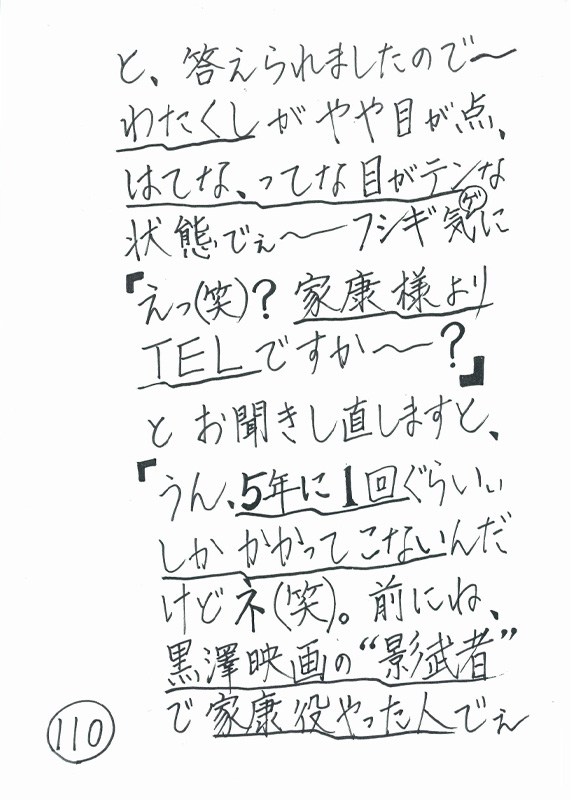 と、答えられましたので〜
わたくしがやや目が点、
はてな、ってな目がテンな
状態でぇ〜フシギ気(ゲ)に
『えっ(笑)？家康様より
TELですか〜？』
とお聞きし直しますと、
『うん、5年に1回ぐらいぃ
しかかかってこないんだ
けどネ(笑)。前にね、
黒澤映画の“影武者”
で家康役やった人でぇ
110